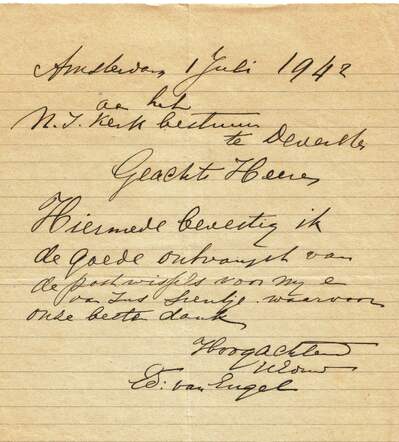 Amsterdam 1 Juli 1942
aa het
N.I. Kerk bestuur
te Deventer
Geachte Heeren
Hiermede bevestig ik
de goede ontvangst van
de postwissels voor mij e
van Zus Sientje waarvoor
onze besten dank
Hoogachtend
UEdw
Ed. van Engel